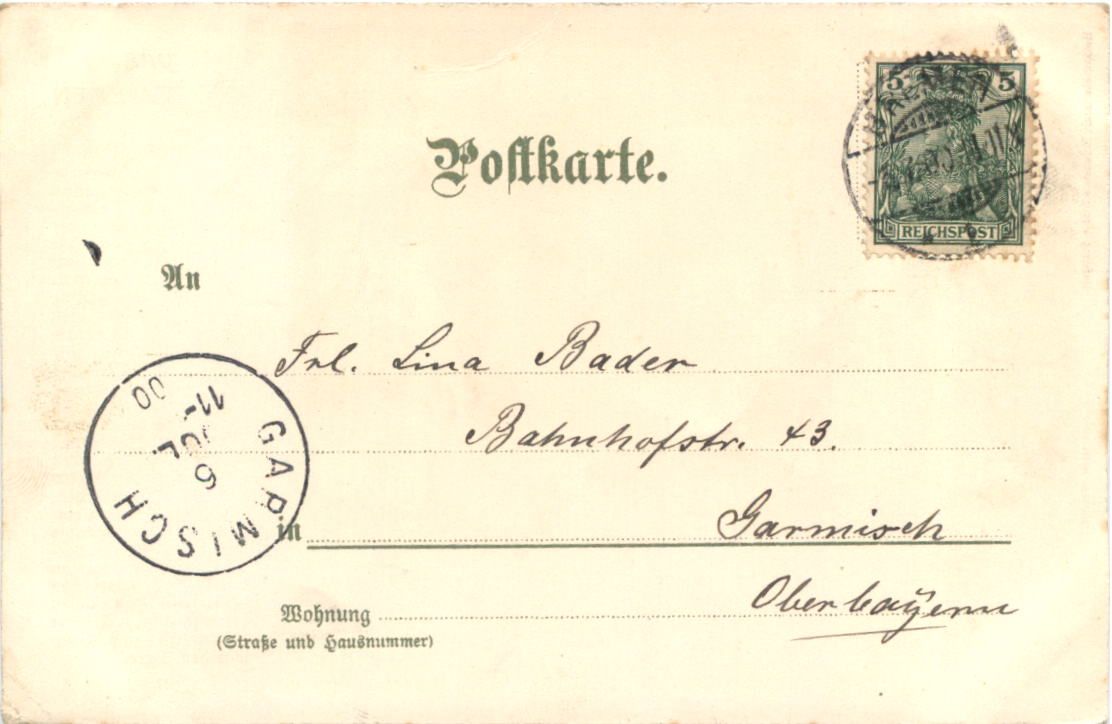 Postkarte.
5 5
BREMEN
REICHSPOST
An
Frl. Lina Bader
Bahnhofstr. 43.
in Garmisch
Oberbaÿern
Wohnung
(Straße und Hausnummer)
GARMISCH
6
JUL
11-
00